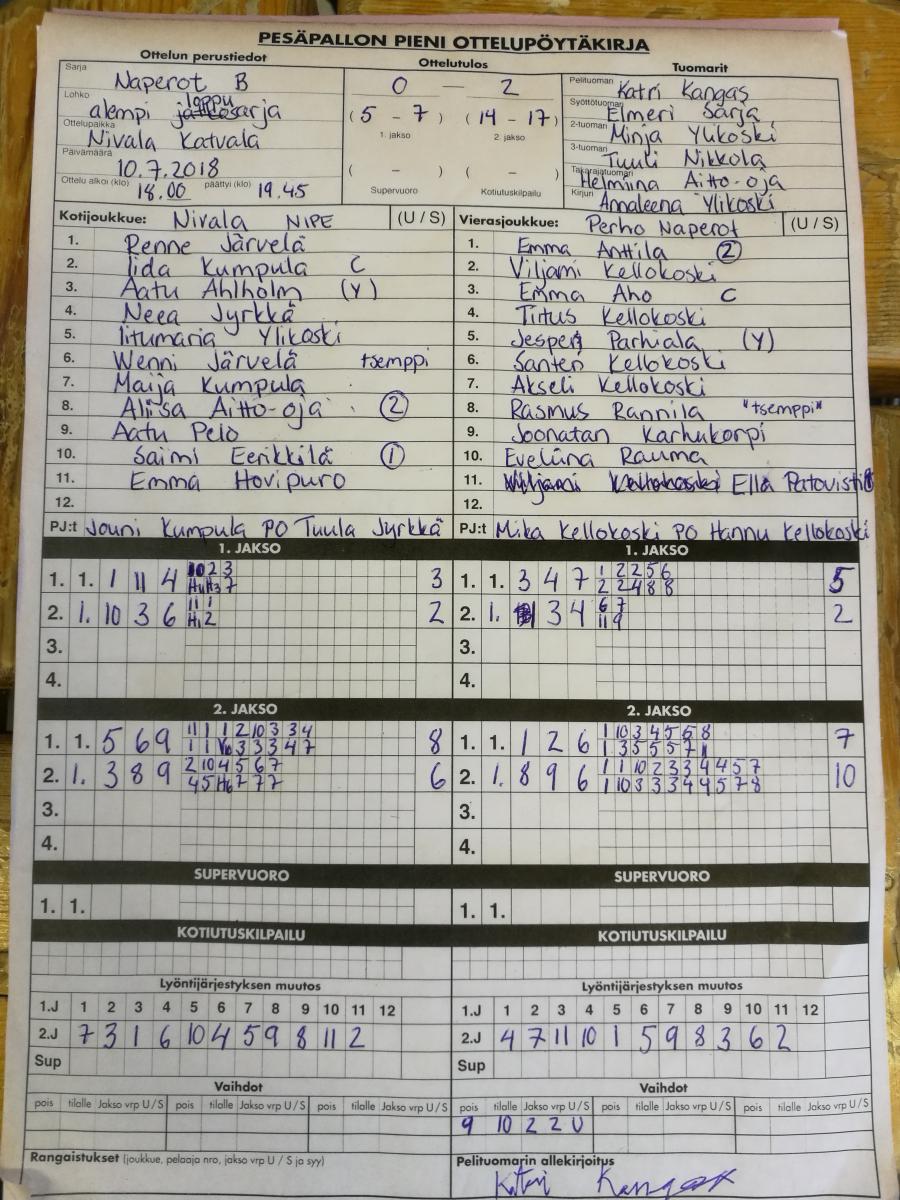 PESÄPALLON PIENI OTTELUPÖYTÄKIRJA
Ottelun perustiedot
Sarja Naperot B
Lohko alempi loppusarja
Ottelupaikka Nivala Katvala
Päivämäärä 10.7.2018
Ottelu alkoi (klo) 18.00 päättyi (klo) 19.45
Ottelutulos
0 — 2
(5 - 7) (14 - 17)
1. jakso 2. jakso
( - ) ( - )
Supervuoro Kotiutuskilpailu
Tuomarit
Pelituomari Katri Kangas
Syöttötuomari Elmeri Sarja
2-tuomari Minja Ylikoski
3-tuomari Tuuli Nikkola
Takarajatuomari Helmiina Aitto-oja
Kirjuri Annaleena Ylikoski
Kotijoukkue: Nivala NIPE (U / S)
1. Renne Järvelä
2. Iida Kumpula C
3. Aatu Ahlholm (Y)
4. Neea Jyrkkä
5. Iitumaria Ylikoski
6. Wenni Järvelä tsemppi
7. Maija Kumpula
8. Aliisa Aitto-oja 2
9. Aatu Pelo
10. Saimi Eerikkilä 1
11. Emma Hovipuro
12.
PJ:t Jouni Kumpula PO Tuula Jyrkkä
Vierasjoukkue: Perho Naperot (U / S)
1. Emma Anttila 2
2. Viljami Kellokoski
3. Emma Aho C
4. Titus Kellokoski
5. Jesper Parhiala (Y)
6. Santeri Kellokoski
7. Akseli Kellokoski
8. Rasmus Rannila "tsemppi"
9. Joonatan Karhukorpi
10. Eveliina Rauma
11. Ella Patovisti
12.
PJ:t Mika Kellokoski PO Hannu Kellokoski
1. JAKSO
1. 1. 1 11 4 10 2 3 3
H4 H3 7
2. 1. 10 3 6 11 1 2
H1 2
3.
4.
1. JAKSO
1. 1. 3 4 7 1 2 2 5 6 5
2 2 4 8 8
2. 1. 3 4 6 7 2
11 9
3.
4.
2. JAKSO
1. 1. 5 6 9 11 1 1 2 10 3 3 4 8
1 1 3 3 3 4 7
2. 1. 3 8 9 2 10 4 5 6 7 6
4 5 H6 7 7 7
3.
4.
2. JAKSO
1. 1. 1 2 6 1 10 3 4 5 5 8 7
1 3 5 5 5 7 11
2. 1. 8 9 6 1 1 10 2 3 3 4 4 5 7 10
1 10 3 3 3 4 4 5 7 8
3.
4.
SUPERVUORO
1. 1.
SUPERVUORO
1. 1.
KOTIUTUSKILPAILU
KOTIUTUSKILPAILU
Lyöntijärjestyksen muutos
1.J 1 2 3 4 5 6 7 8 9 10 11 12
2.J 7 3 1 6 10 4 5 9 8 11 2
Sup
Lyöntijärjestyksen muutos
1.J 1 2 3 4 5 6 7 8 9 10 11 12
2.J 4 7 11 10 1 5 9 8 3 6 2
Sup
Vaihdot
pois tilalle Jakso vrp U / S pois tilalle Jakso vrp U / S pois tilalle Jakso vrp U / S
Vaihdot
pois tilalle Jakso vrp U / S pois tilalle Jakso vrp U / S pois tilalle Jakso vrp U / S
9 10 2 2 U
Rangaistukset (joukkue, pelaaja nro, jakso vrp U / S ja syy)
Pelituomarin allekirjoitus
Katri Kangas